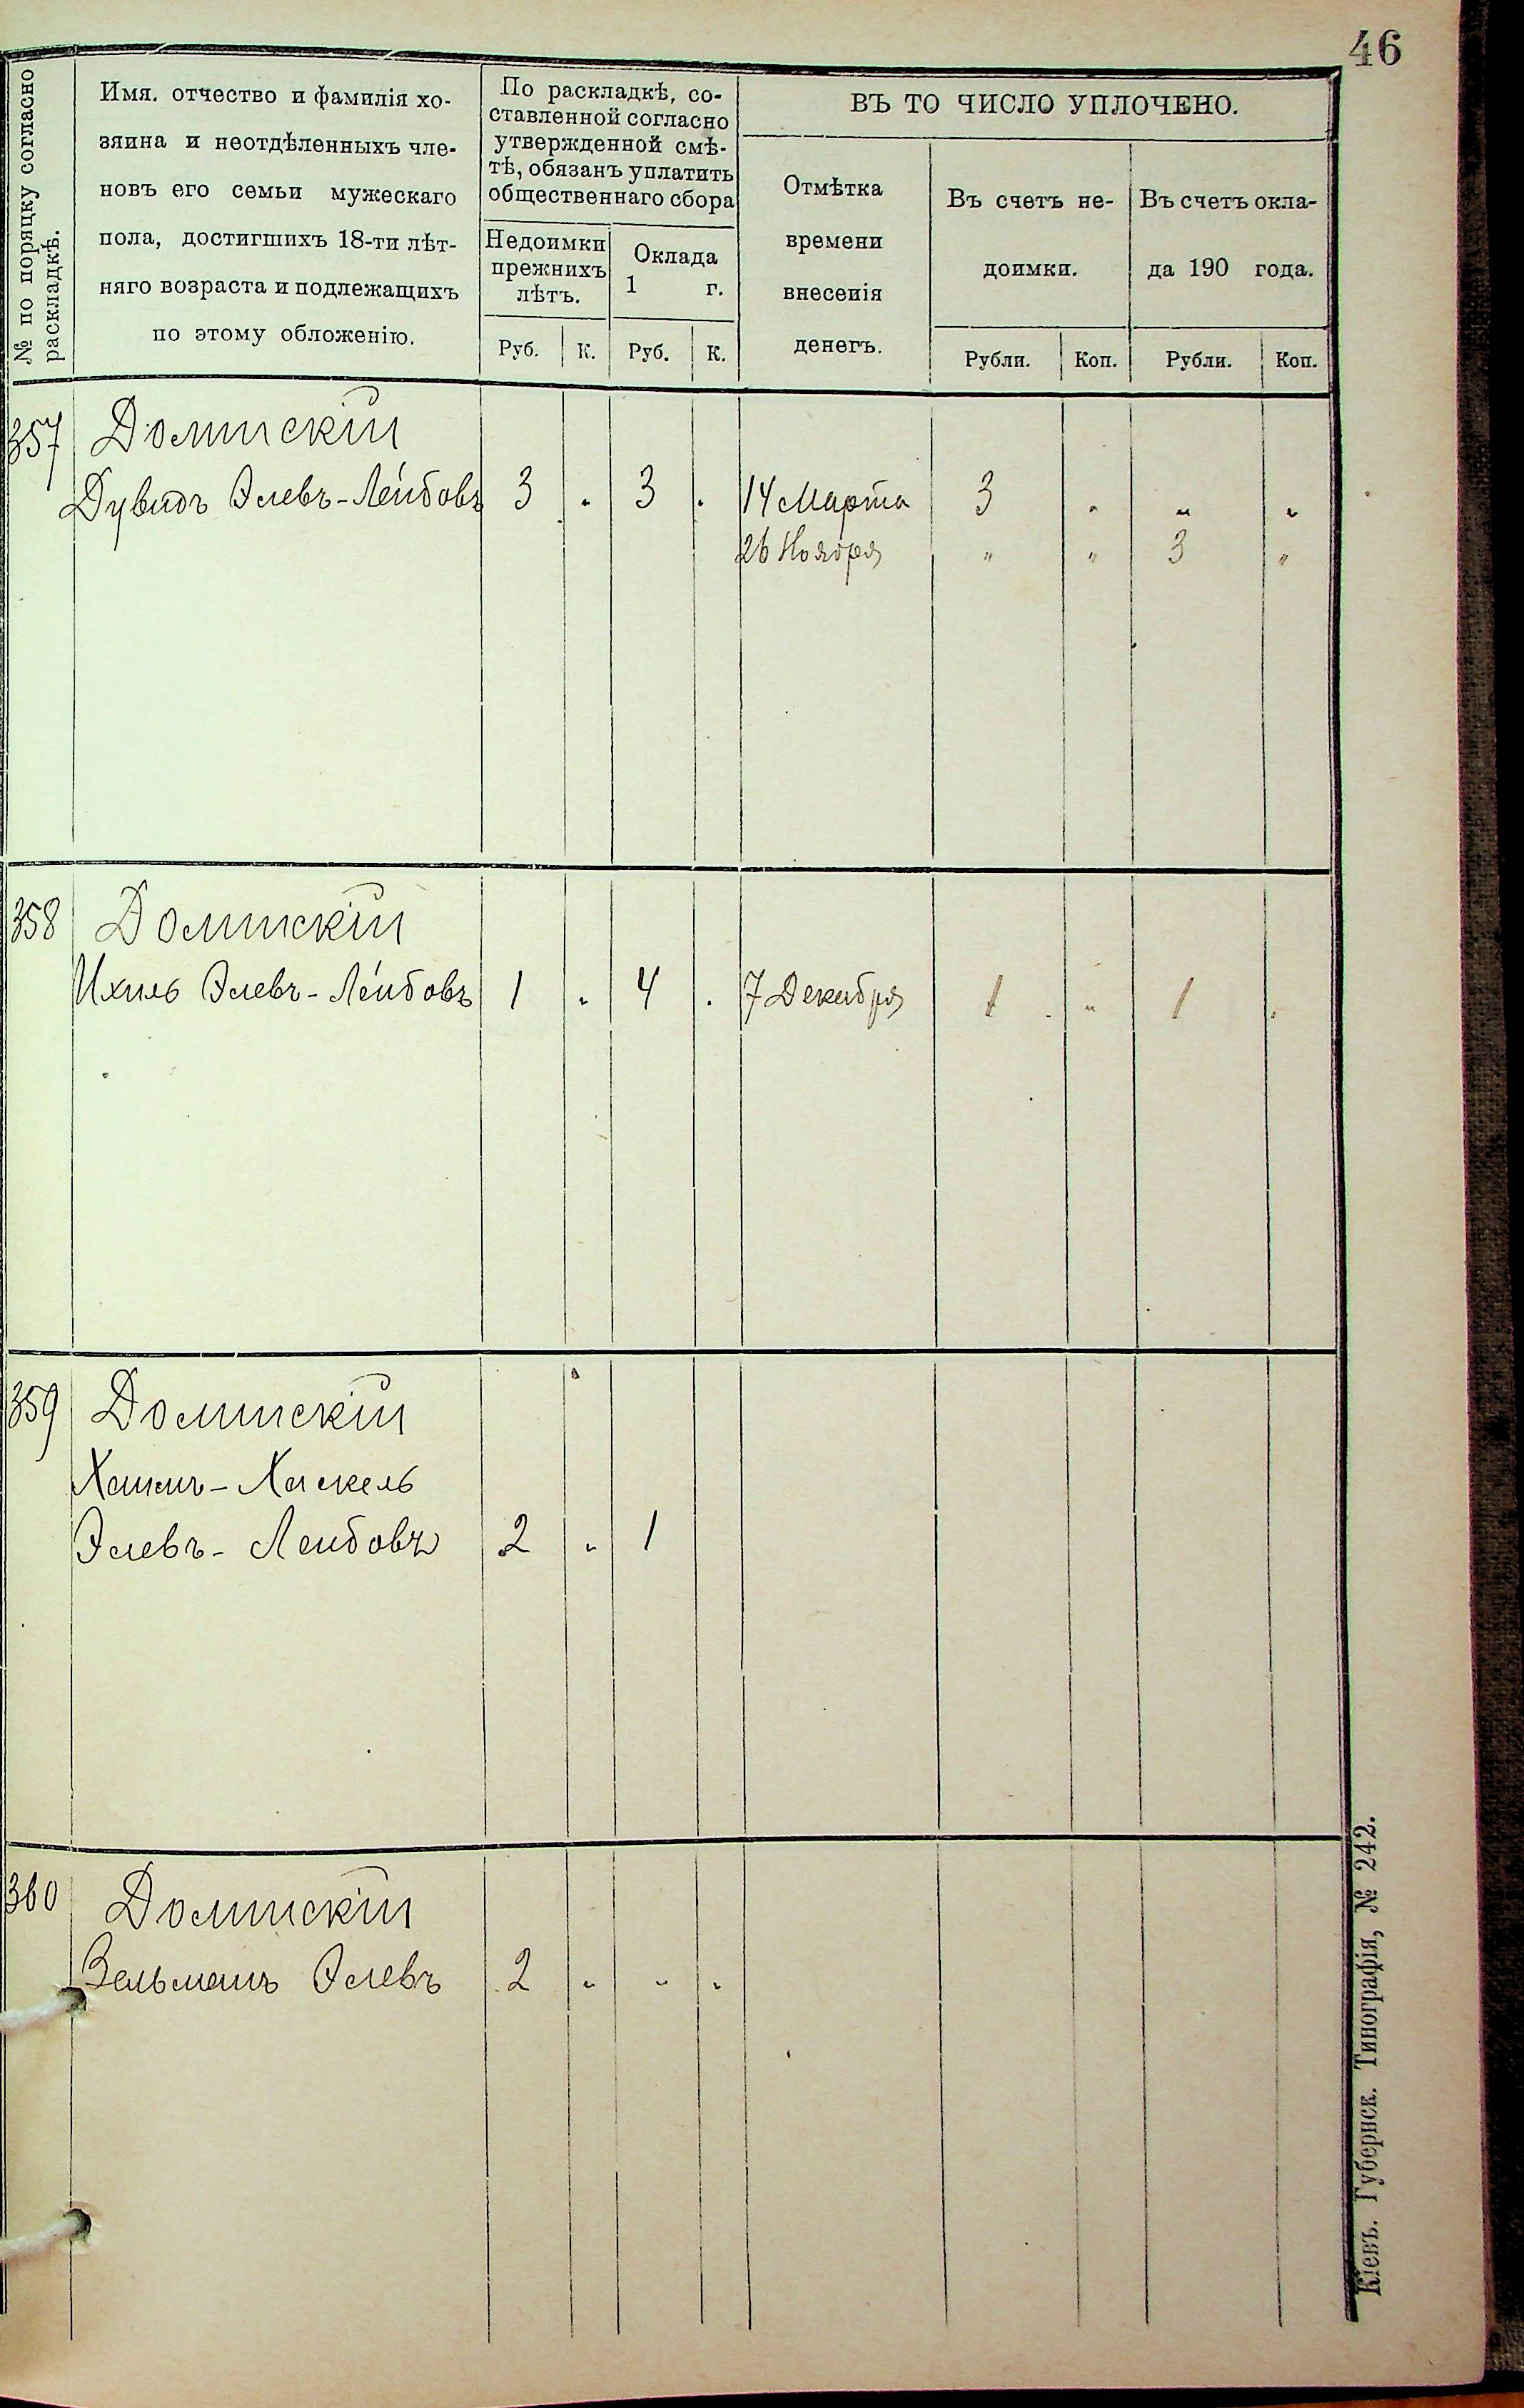 46
№ по порядку согласно
раскладкѣ.
Имя, отчество и фамилія хо-
зяина и неотдѣленныхъ чле-
новъ его семьи мужескаго
пола, достигшихъ 18-ти лѣт-
няго возраста и подлежащихъ
по этому обложенію.
По раскладкѣ, со-
ставленной согласно
утвержденной смѣ-
тѣ, обязанъ уплатить
общественнаго сбора
Недоимки
прежнихъ
лѣтъ.
Оклада
1 г.
Руб. К. Руб. К.
ВЪ ТО ЧИСЛО УПЛОЧЕНО.
Отмѣтка
времени
внесенія
денегъ.
Въ счетъ не-
доимки.
Въ счетъ окла-
да 190 года.
Рубли. Коп. Рубли. Коп.
357 Долинскій
Дувидъ Элевъ-Лейбовъ 3 " 3 " 14 Марта 3 " " "
26 Ноября " " 3 "
358 Долинскій
Ихиль Элевъ-Лейбовъ 1 " 4 " 7 Декабря 1 " 1 "
359 Долинскій
Хаимъ-Хаскель
Элевъ-Лейбовъ 2 " 1
360 Долинскій
Зельманъ Элевъ 2 " " "
Кіевъ. Губернск. Типографія, № 242.